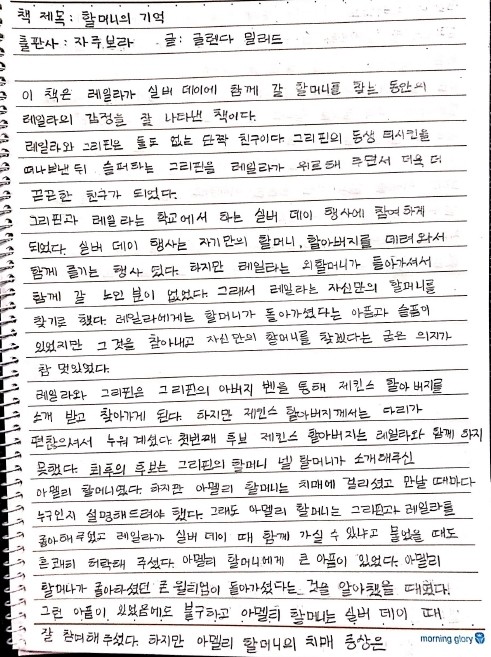 책 제목: 할머니의 기억
출판사: 자주보라 글: 글렌다 밀러드
이 책은 레일라가 실버 데이에 함께 갈 할머니를 찾는 동안의
레일라의 감정을 잘 나타낸 책이다.
레일라와 그리핀은 둘도 없는 단짝 친구이다. 그리핀의 동생
떠나보낸 뒤 슬퍼하는 그리핀을 레일라가 위로해 주면서 더욱 더
끈끈한 친구가 되었다.
그리핀과 레일라는 학교에서 하는 실버 데이 행사에 참여하게
되었다. 실버 데이 행사는 자기만의 할머니, 할아버지를 데려와서
함께 즐기는 행사였다. 하지만 레일라는 외할머니가 돌아가셔서
함께 갈 노인 분이 없었다. 그래서 레일라는 자신만의 할머니를
찾기로 했다. 레일라에게는 할머니가 돌아가셨다는 아픔과 슬픔이
있었지만 그것을 참아내고 자신만의 할머니를 찾겠다는 굳은 의지가
참 멋있었다.
레일라와 그리핀은 그리핀의 아버지 벤을 통해 제킨스 할아버지를
소개 받고 찾아가게 된다. 하지만 제킨스 할아버지께서는 다리가
편찮으셔서 누워 계셨다. 첫번째 후보 제킨스 할아버지는 레일라와 함께 하지
못했다. 최후의 후보는 그리핀의 할머니 넬 할머니가 소개해주신
아멜리 할머니였다. 하지만 아멜리 할머니는 치매에 걸리셨고 만날 때마다
누구인지 설명해드려야 했다. 그래도 아멜리 할머니는 그리핀과 레일라를
좋아해주었고 레일라가 실버 데이 때 함께 가실 수 있냐고 물었을 때도
흔쾌히 허락해 주셨다. 아멜리 할머니에게 큰 아픔이 있었다. 아멜리
할머니가 좋아하셨던 윌리엄이 돌아가셨다는 것을 알아챘을 때였다.
그런 아픔이 있었음에도 불구하고 아멜리 할머니는 실버 데이 때
잘 참여해 주셨다. 하지만 아멜리 할머니의 치매 증상은
morning glory